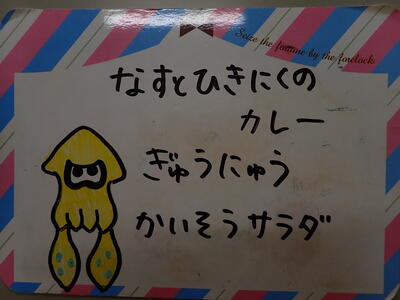 Seize the fortune by the forelock.
なすとひきにくの
カレー
ぎゅうにゅう
かいそうサラダ